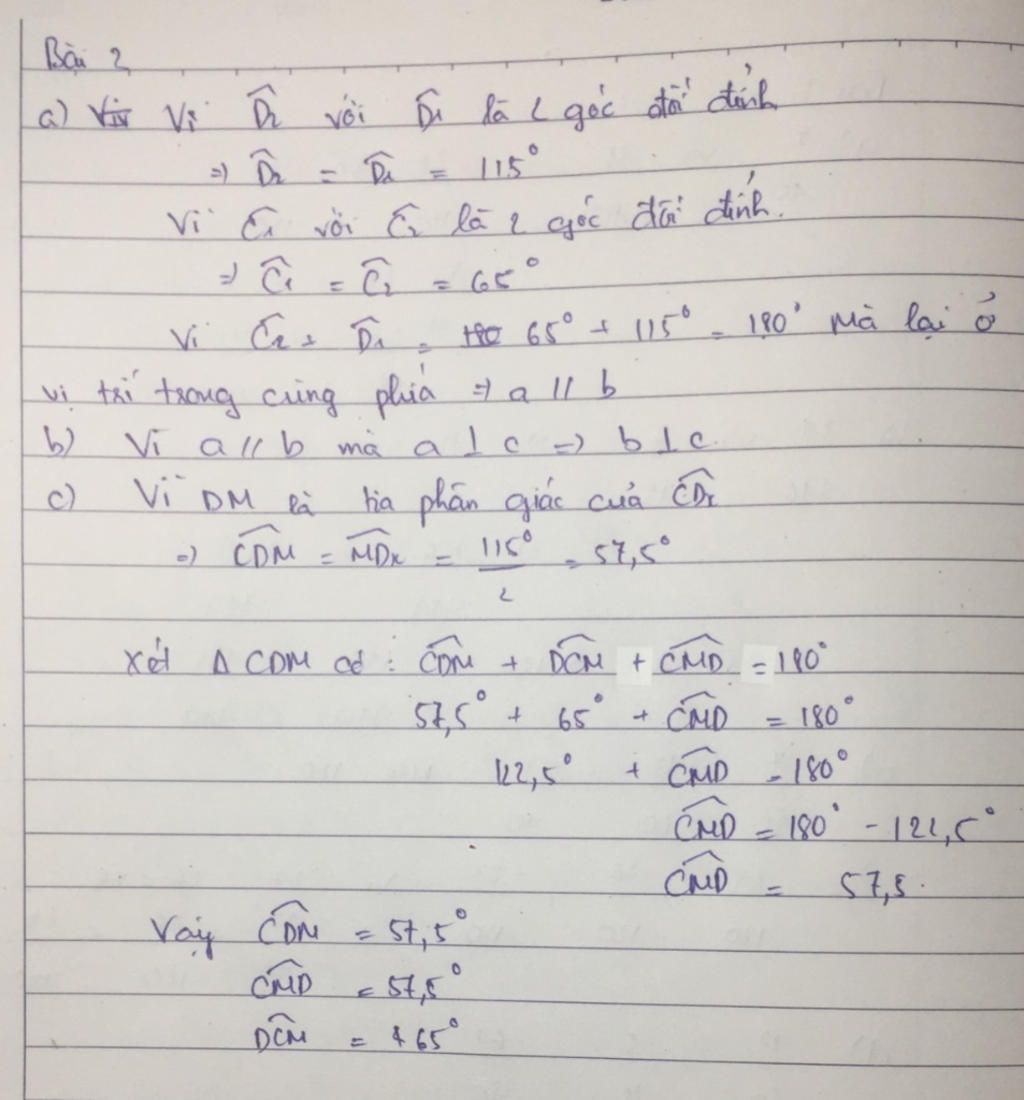 Bài 2
a) Vì D̂₂ với D̂₁ là 2 góc đối đỉnh
=> D̂₂ = D̂₁ = 115°
Vì Ĉ₁ với Ĉ₂ là 2 góc đối đỉnh.
=> Ĉ₁ = Ĉ₂ = 65°
Vì Ĉ₂ + D̂₁ = 65° + 115° = 180° Mà lại ở
vị trí trong cùng phía => a // b
b) Vì a // b mà a ⊥ c => b ⊥ c.
c) Vì DM là tia phân giác của CDx
=> CDM = MDx = 115°/2 = 57,5°
Xét Δ CDM có : CDM + DCM + CMD = 180°
57,5° + 65° + CMD = 180°
122,5° + CMD = 180°
CMD = 180° - 122,5°
CMD = 57,5.
Vậy CDM = 57,5°
CMD = 57,5°
DCM = 65°